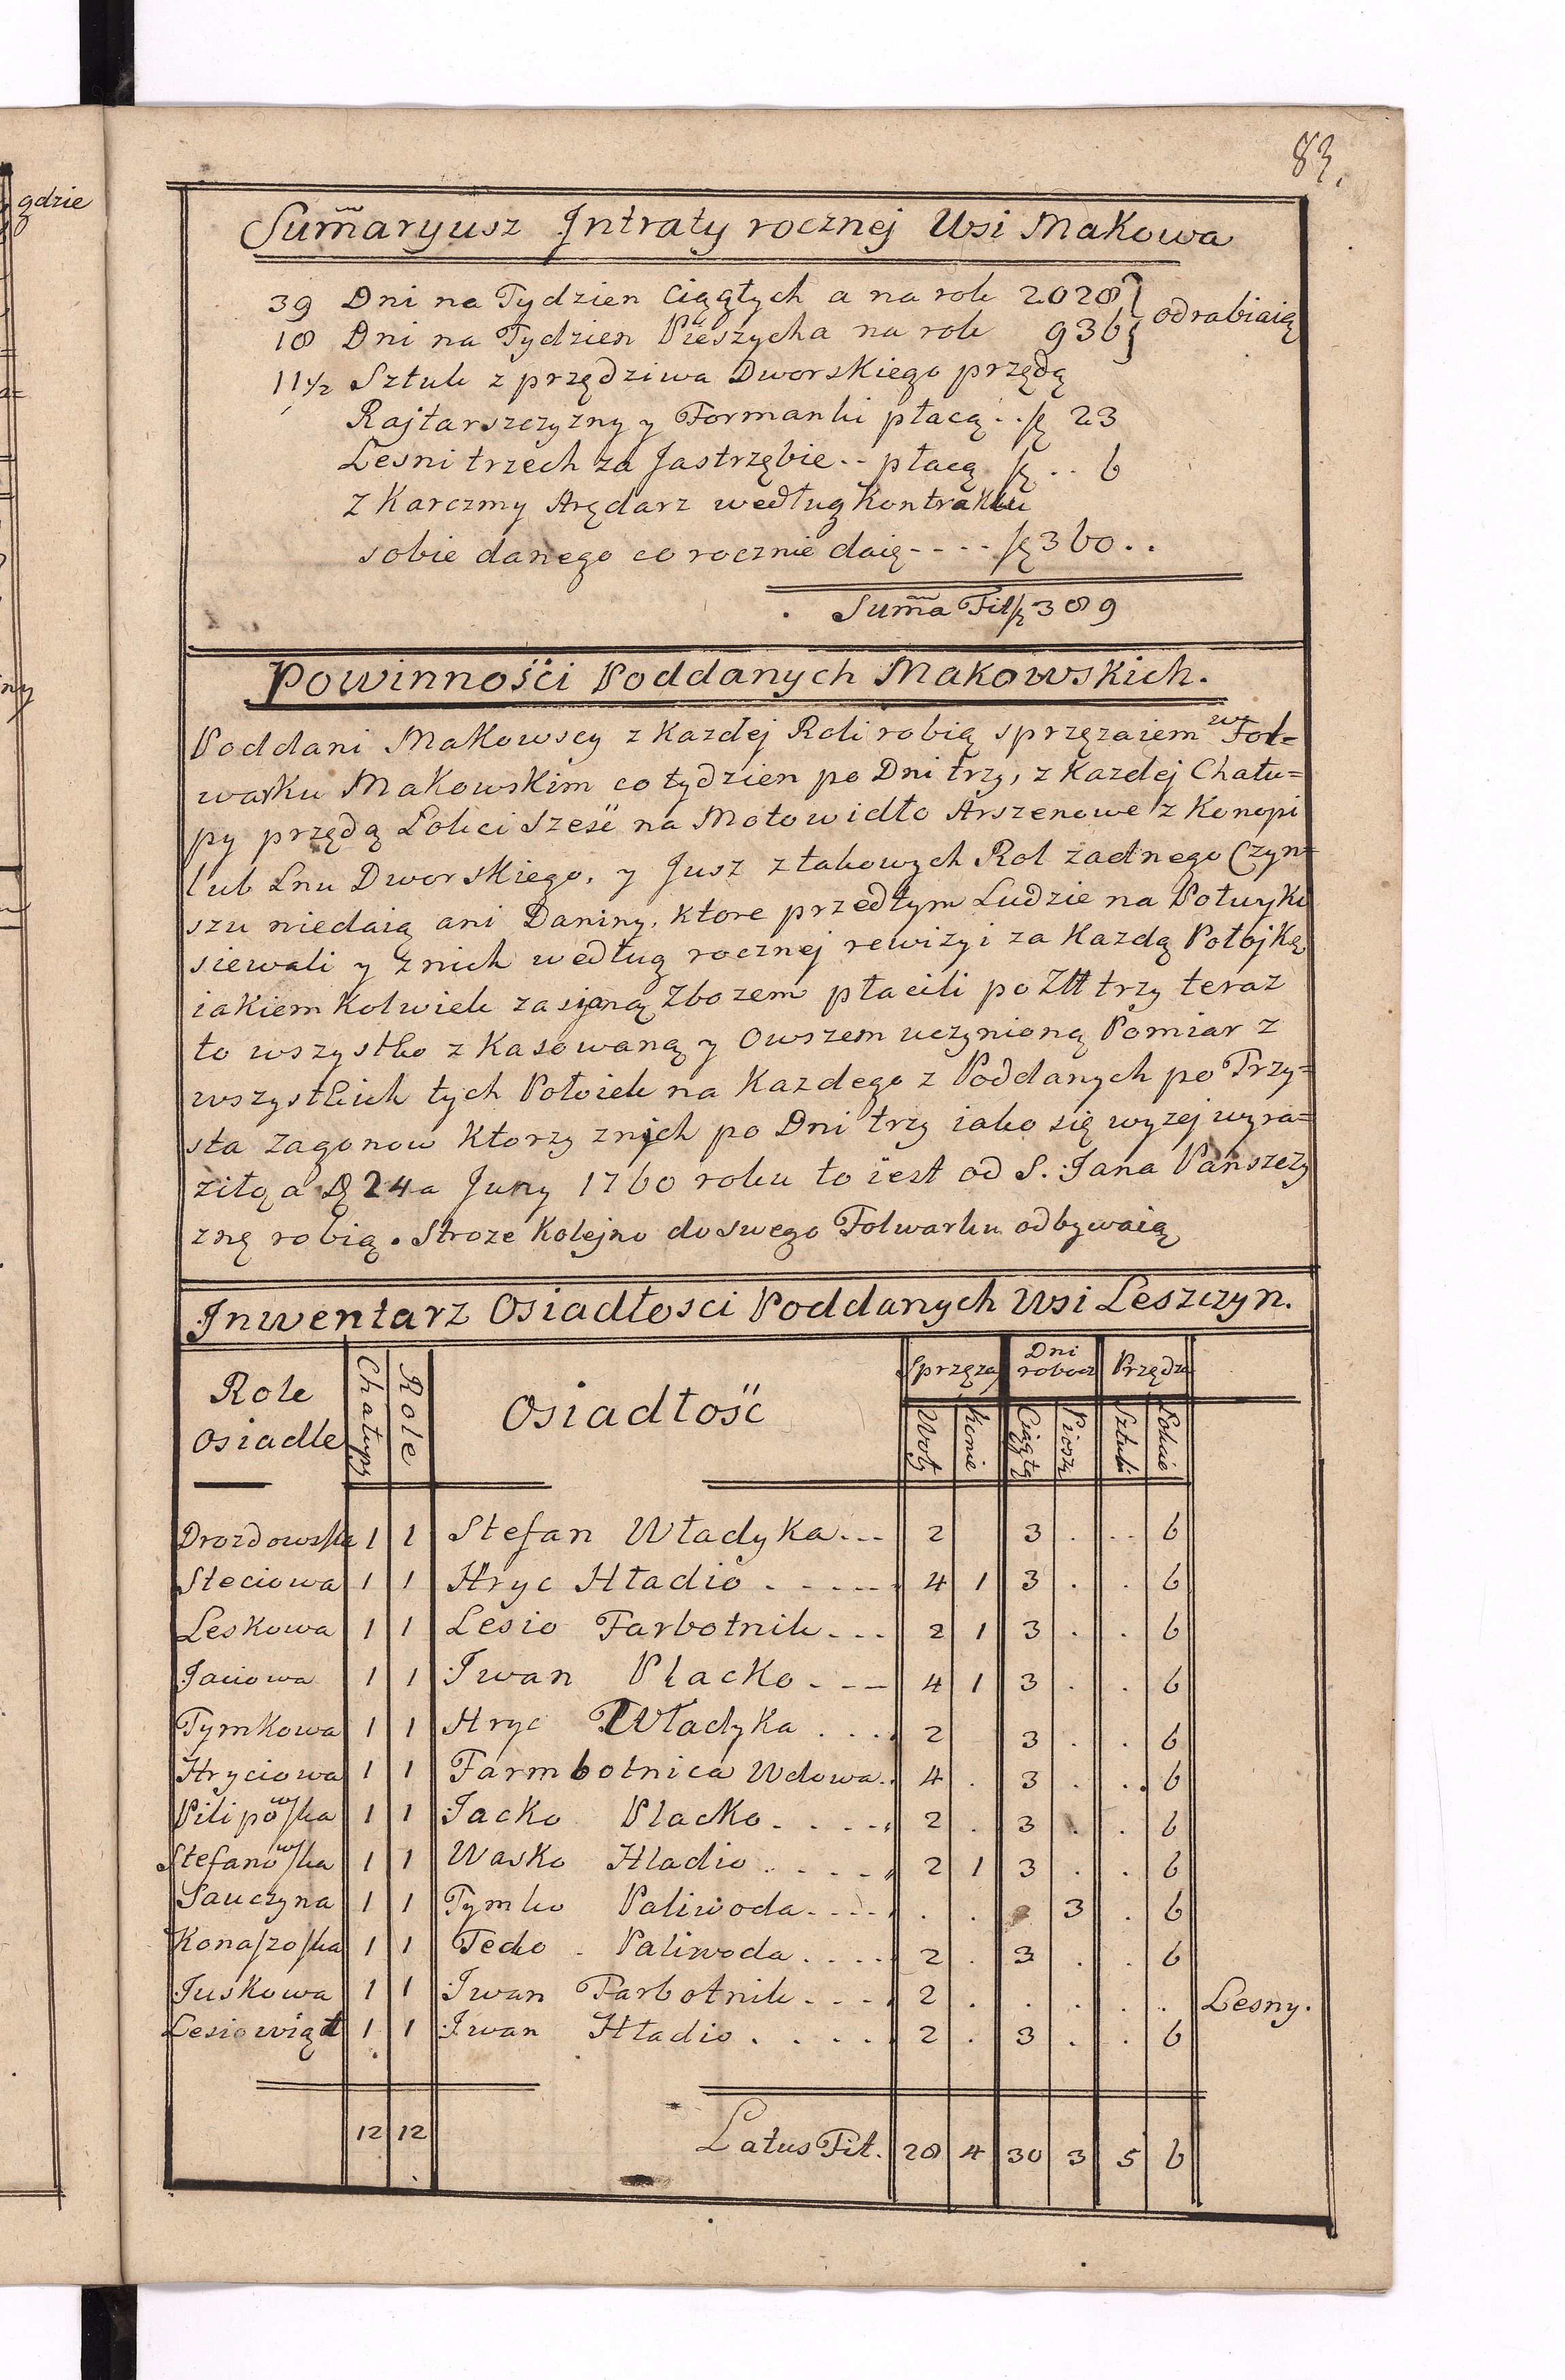 gdzie
83.
Sum̃aryusz Intraty rocznej Wsi Makowa
39 Dni na Tydzien Ciągłych a na rok 2028
odrabiaią
18 Dni na Tydzien Pieszych a na rok 936
11 1/2 Sztuk z przędziwa Dworskiego przędą
Rajtarszczyzny y Formanki płacą .. 23
Lesni trzech za Jastrzębie .. płacą .. 6
z Karczmy Arędarz według Kontraktu
sobie danego co rocznie daię - - - - 360 ..
Sum̃a Fit 389
Powinności Poddanych Makowskich.
Poddani Makowscy z Kazdej Roli robią sprzęzaiem w Fol=
warku Makowskim co tydzien po Dni trzy, z Kazdej Chału=
py przędą Łokci Sześć na Motowidło Arszenowe z Konopi
lub Lnu Dworskiego, y Jusz z takowych Rol zadnego Czyn=
szu niedaią ani Daniny, Ktore przedtym Ludzie na Połuyki
siewali y z nich według rocznej rewizyi za Kazdą Połojkę
iakiem Kolwiek zasianą Zbozem płacili po Złt trzy teraz
to wszystko z Kasowaną y Owszem uczynioną Pomiar z
wszystkich tych Połoiek na Kazdego z Poddanych po Trzy=
sta Zagonow Ktorzy z nich po Dni trzy iako się wyzej wyra=
ziło a D 24a Juny 1760 roku to iest od S. Jana Panszczy
znę robią. Stroze Kolejno do swego Folwarku odbywaią
Inwentarz Osiadłosci Poddanych Wsi Leszczyn.
Role Osiadłe Chałupy Role Osiadłość Sprzęza Dni robocz Przędza
Woły Konie Ciągłe Piesz Sztuki Łokcie
Drozdowska 1 1 Stefan Władyka - - - 2 3 . .. 6
Steciowa 1 1 Hryc Hładio . - - - - 4 1 3 . . 6
Leskowa 1 1 Lesio Farbotnik - - - 2 1 3 . . 6
Jaciowa 1 1 Iwan Placko - - - 4 1 3 . . 6
Tymkowa 1 1 Hryc Władyka . . . . 2 3 . . 6
Hryciowa 1 1 Farmbotnica Wdowa . . 4 . 3 . .. 6
Pilipowska 1 1 Jacko Placko - - - - 2 . 3 . . 6
Stefanowska 1 1 Wasko Hladio . . - - - 2 1 3 . . 6
Sauczyna 1 1 Tymko Paliwoda - - - - . . 3 . 6
Konaszoska 1 1 Fedo - Paliwoda . . . . 2 . 3 . . 6
Juskowa 1 1 Iwan Farbotnik - - - 2 . . . . . Lesny.
Lesiowiąt 1 1 Iwan Hładio . . . . . 2 . 3 . . 6
12 12 Latus Fit. 28 4 30 3 5 6